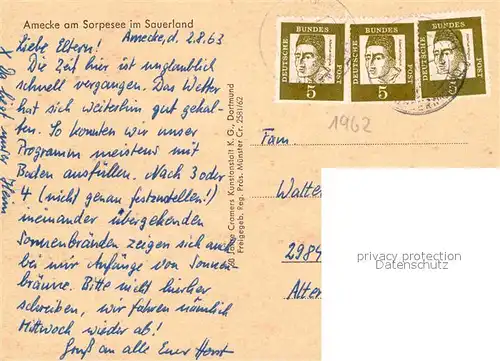 Amecke am Sorpesee im Sauerland
Amecke, d. 2.8.63
Liebe Eltern!
Die Zeit hier ist unglaublich
schnell vergangen. Das Wetter
hat sich weiterhin gut gehal-
ten. So konnten wir unser
Programm meistens mit
Baden ausfüllen. Nach 3 oder
4 (nicht genau festzustellen!)
ineinander übergehenden
Sonnenbränden zeigen sich auch
bei mir Anfänge von Sonnen
bräune. Bitte nicht hierher
schreiben, wir fahren nämlich
Mittwoch wieder ab!
Gruß an alle Euer Horst
Cramers Kunstanstalt K. G., Dortmund
Freigegeb. Reg. Präs. Münster Cr. 2581/62
DEUTSCHE BUNDES POST
5
DEUTSCHE BUNDES POST
5
DEUTSCHE BUNDES POST
1962
Fam.
Walter
2984
protected by copyright
Datenschutz